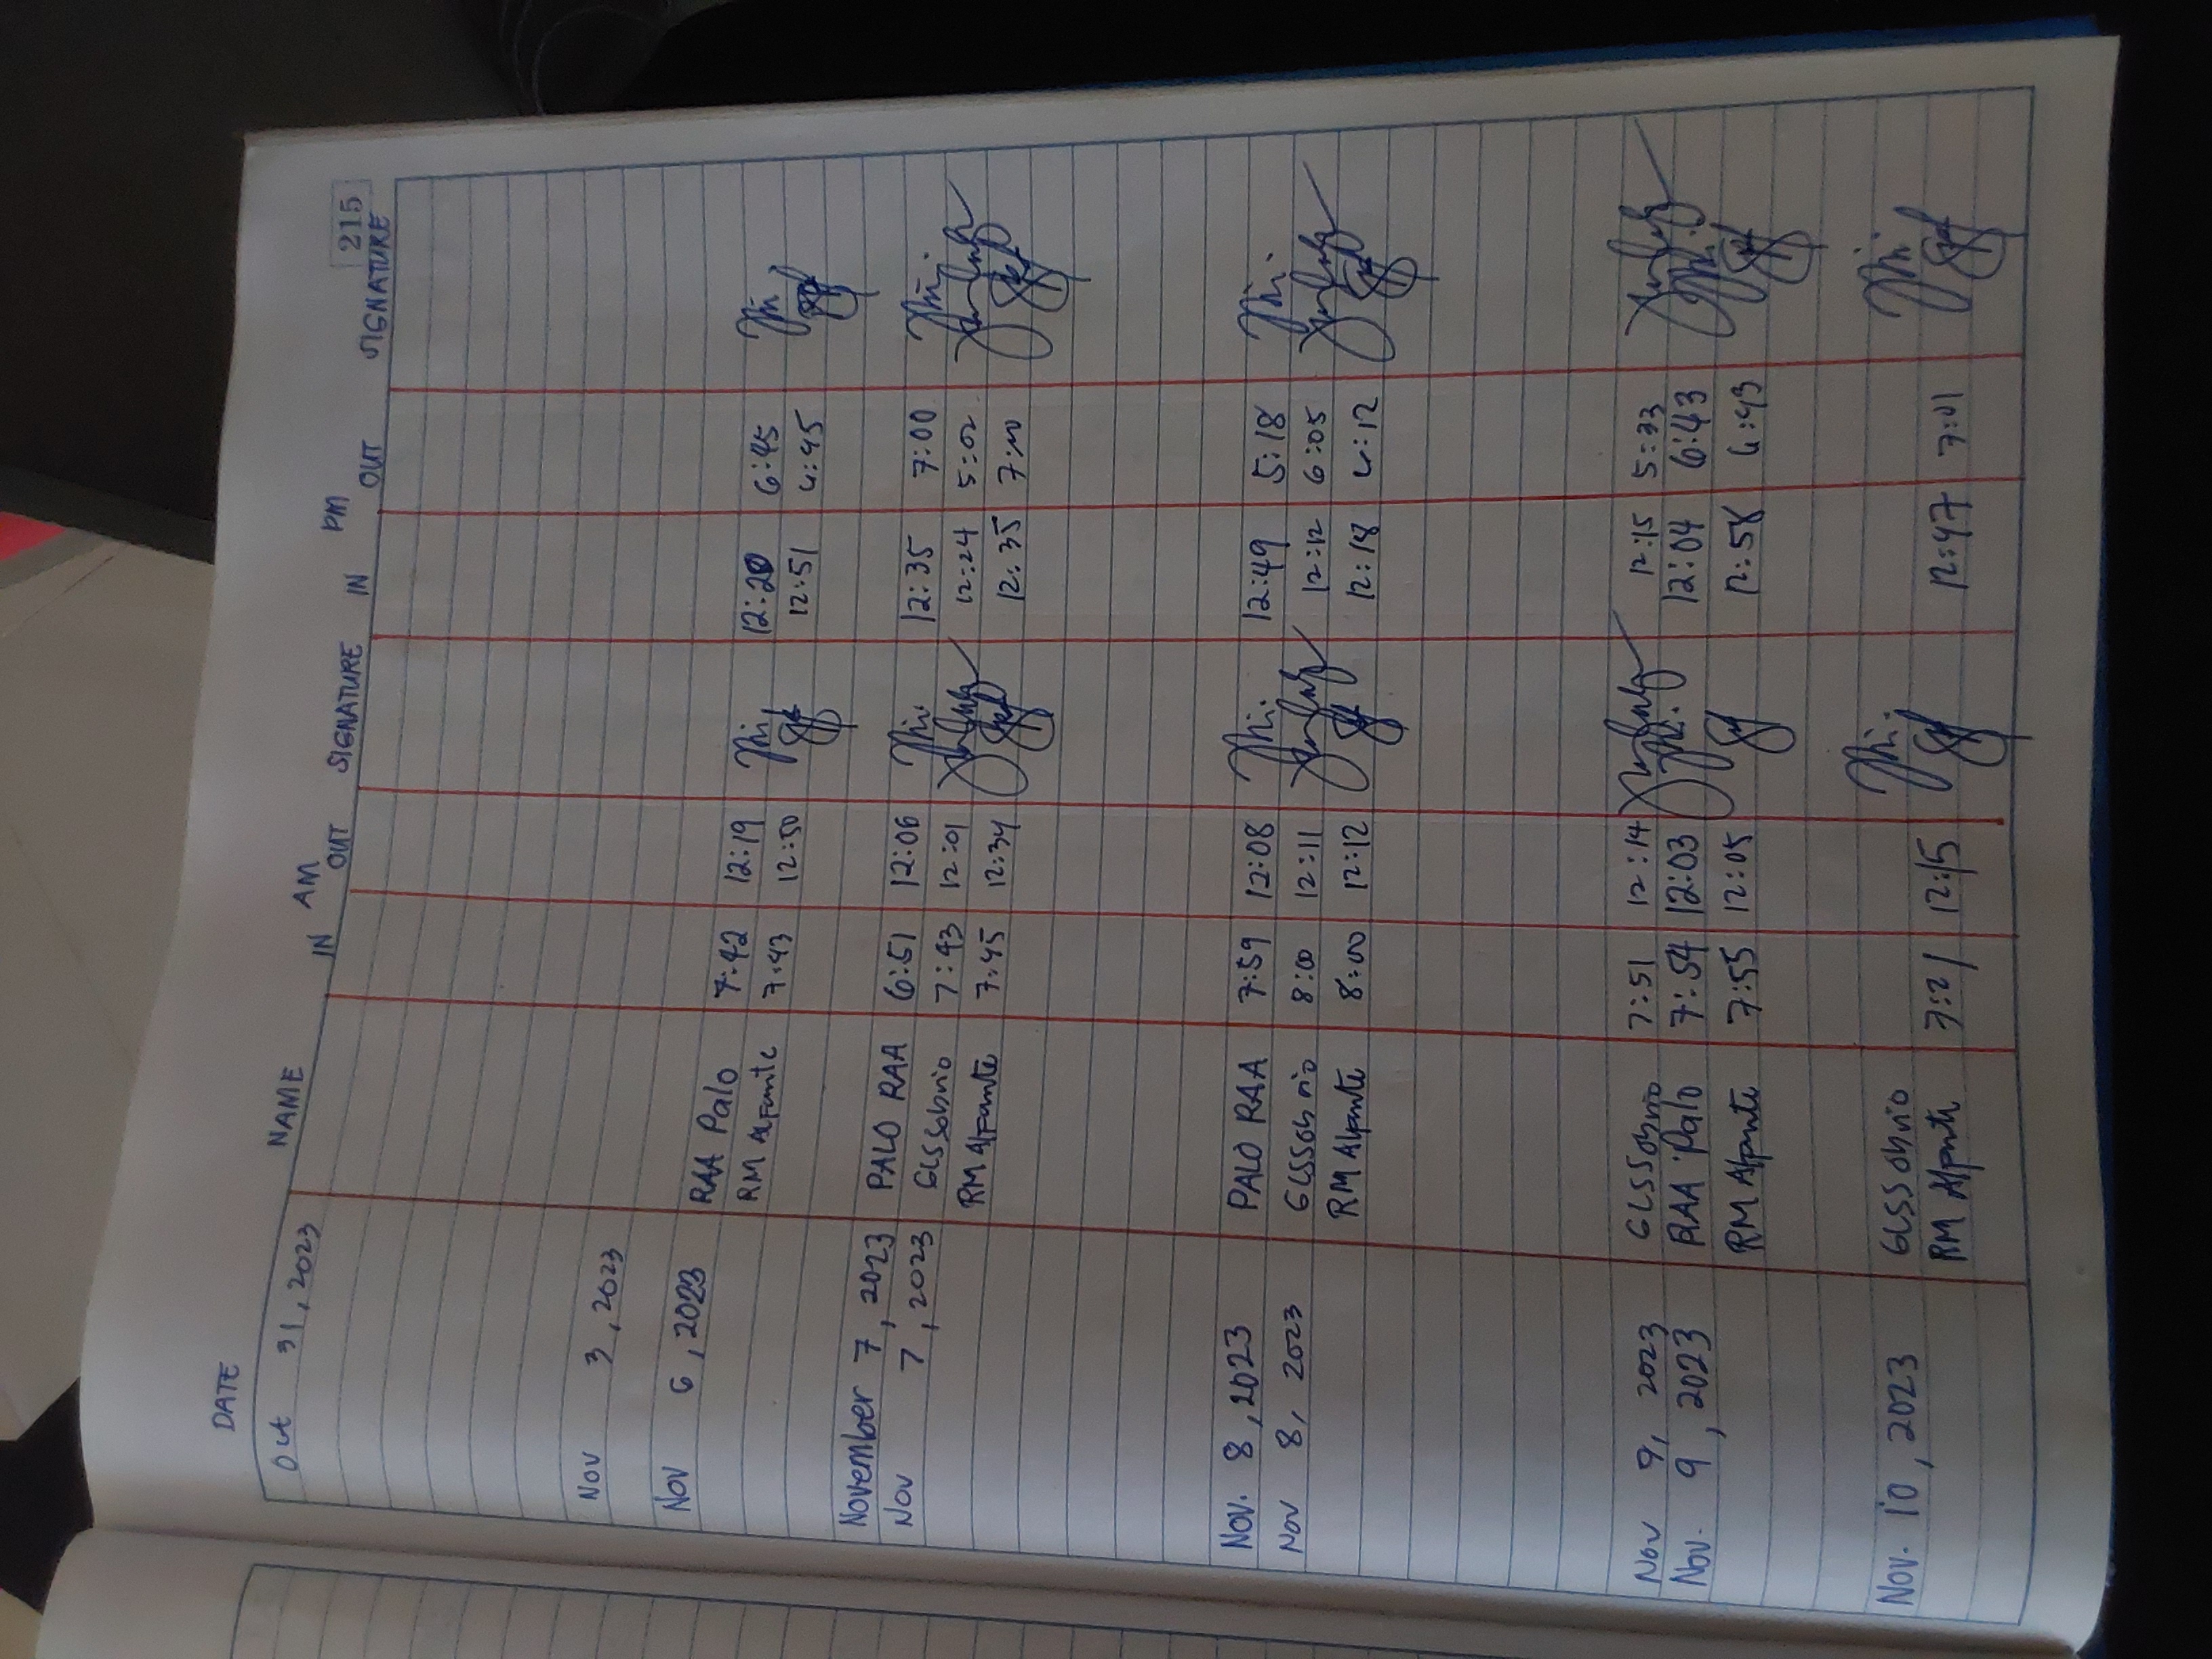 215
DATE NAME IN AM OUT SIGNATURE IN PM OUT SIGNATURE
Oct 31, 2023
Nov 3, 2023
Nov 6, 2023 RAA Palo 7:42 12:19 12:20 6:45
RM Alfante 7:43 12:50 12:51 6:45
November 7, 2023 PALO RAA 6:51 12:06 12:35 7:00
Nov 7, 2023 GLSSobrio 7:43 12:01 12:24 5:02
RM Alfante 7:45 12:34 12:35 7:00
Nov. 8, 2023 PALO RAA 7:59 12:08 12:49 5:18
Nov 8, 2023 GLSSobrio 8:00 12:11 12:12 6:05
RM Alfante 8:00 12:12 12:18 6:12
Nov 9, 2023 GLSSobrio 7:51 12:14 12:15 5:33
Nov. 9, 2023 RAA Palo 7:54 12:03 12:04 6:43
RM Alfante 7:55 12:05 12:58 6:43
Nov. 10, 2023 GLSSobrio
RM Alfante 7:21 12:15 12:47 7:01